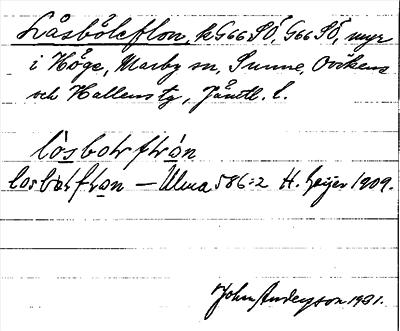 Låsböleflon, kG66SÖ, G66SÖ, myr
i Höge, Marby sn, Sunne, Ovikens
och Hallens tg, Jämtl. l.
lòsbolrflo̱n
losbolrflo̱n — Ulma 586:2 H. Geijer 1909.
John Anderson 1931.